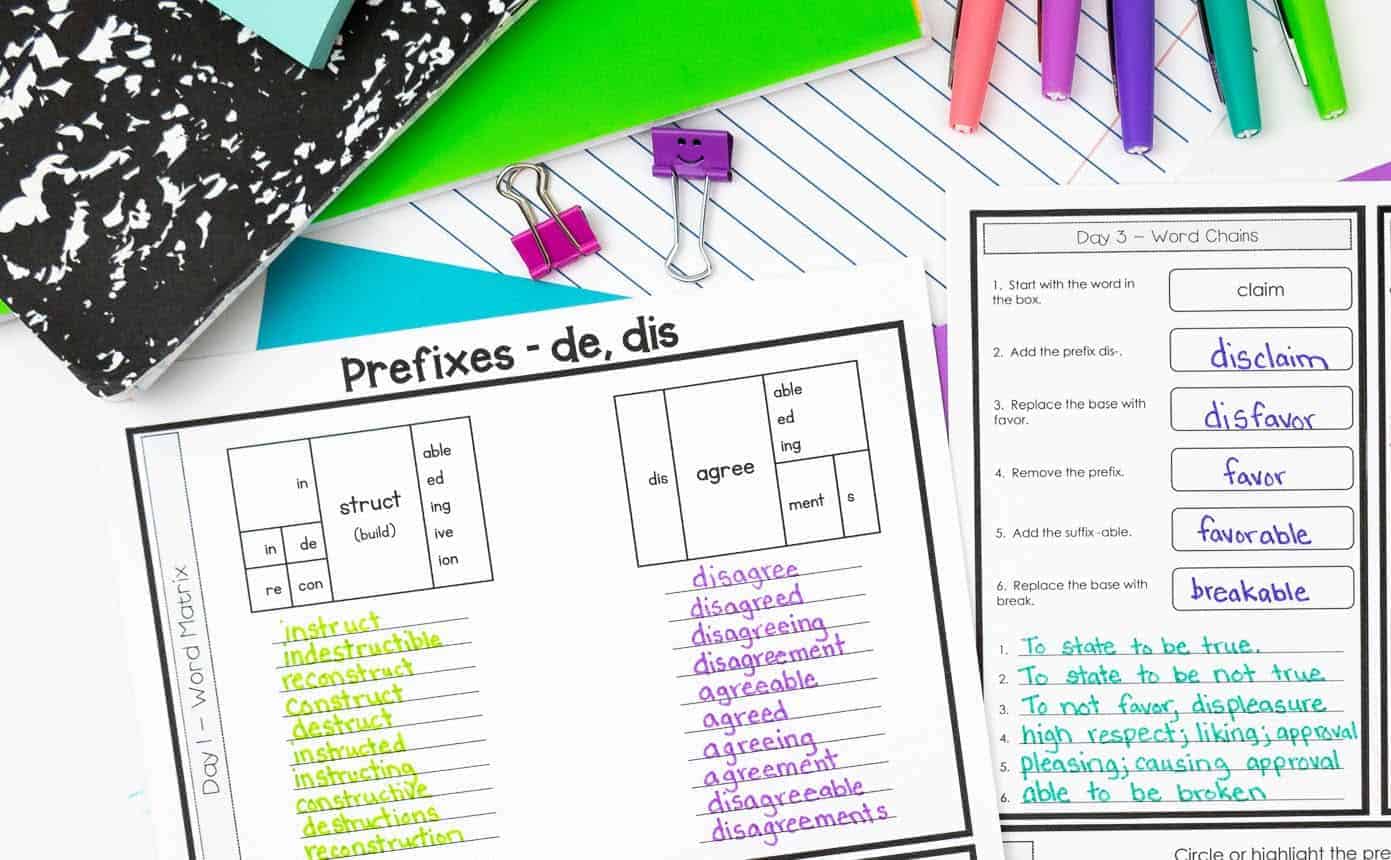 Prefixes - de, dis
Day 1 - Word Matrix
in
in
de
re
con
struct
(build)
able
ed
ing
ive
ion
instruct
indestructible
reconstruct
construct
destruct
instructed
instructing
constructive
destructions
reconstruction
dis
agree
able
ed
ing
ment
s
disagree
disagreed
disagreeing
disagreement
agreeable
agreed
agreeing
agreement
disagreeable
disagreements
Day 3 - Word Chains
1. Start with the word in
the box.
claim
2. Add the prefix dis-.
disclaim
3. Replace the base with
favor.
disfavor
4. Remove the prefix.
favor
5. Add the suffix -able.
favorable
6. Replace the base with
break.
breakable
1. To state to be true.
2. To state to be not true
3. To not favor, displeasure
4. high respect; liking; approval
5. pleasing; causing approval
6. able to be broken
Circle or highlight the